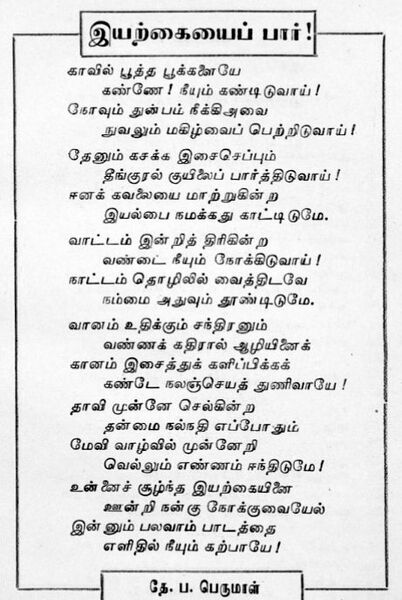 இயற்கையைப் பார்!
காவில் பூத்த பூக்களையே
கண்ணே! நீயும் கண்டிடுவாய்!
நோவும் துன்பம் நீக்கிஅவை
நுவலும் மகிழ்வைப் பெற்றிடுவாய்!
தேனும் கசக்க இசைசெப்பும்
தீங்குரல் குயிலைப் பார்த்திடுவாய்!
ஈனக் கவலையை மாற்றுகின்ற
இயல்பை நமக்கது காட்டிடுமே.
வாட்டம் இன்றித் திரிகின்ற
வண்டை நீயும் நோக்கிடுவாய்!
நாட்டம் தொழிலில் வைத்திடவே
நம்மை அதுவும் தூண்டிடுமே.
வானம் உதிக்கும் சந்திரனும்
வண்ணக் கதிரால் ஆழியினைக்
கானம் இசைத்துக் களிப்பிக்கக்
கண்டே நலஞ்செயத் துணிவாயே!
தாவி முன்னே செல்கின்ற
தன்மை நல்நதி எப்போதும்
மேவி வாழ்வில் முன்னேறி
வெல்லும் எண்ணம் ஈந்திடுமே!
உன்னைச் சூழ்ந்த இயற்கையினை
ஊன்றி நன்கு நோக்குவையேல்
இன்னும் பலவாம் பாடத்தை
எளிதில் நீயும் கற்பாயே!
தே. ப. பெருமாள்